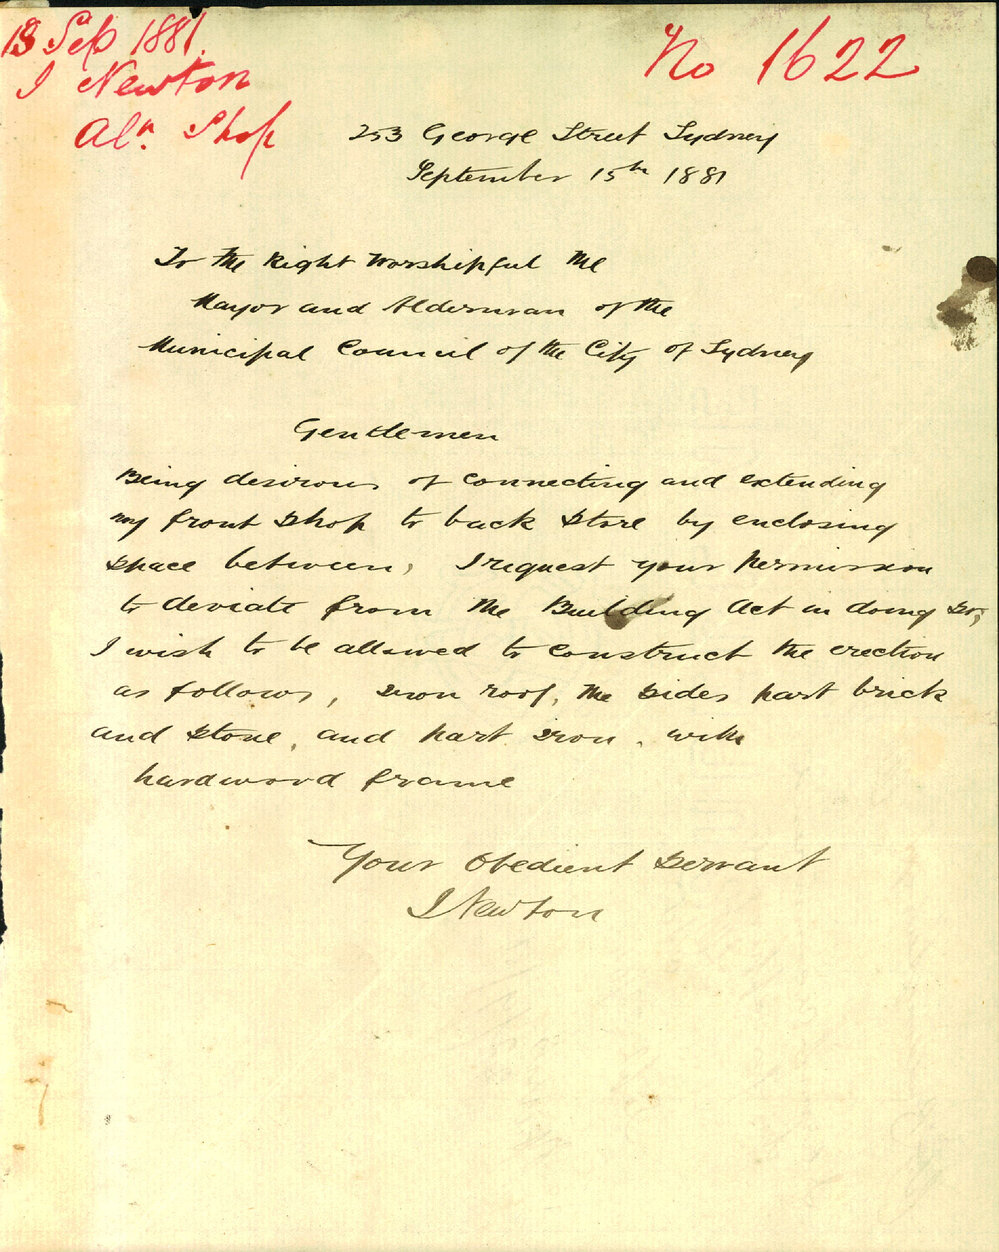 Sep 1881.
I Newton
Aln. Shop
No 1622
253 George Street Sydney
September 15th 1881
To the Right Worshipful the
Mayor and Alderman of the
Municipal Council of the City of Sydney
Gentlemen
Being desirous of connecting and extending
my front shop to back store by enclosing
space between, I request your permission
to deviate from the Building Act in doing so,
I wish to be allowed to construct the erection
as follows, iron roof, the sides part brick
and stone, and part iron, with
hardwood frame
Your Obedient Servant
I Newton